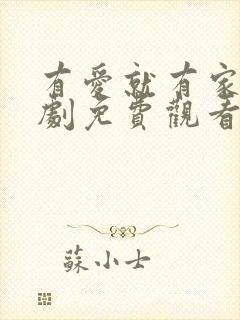 有愛就有家
劇免費觀看
蘇小士